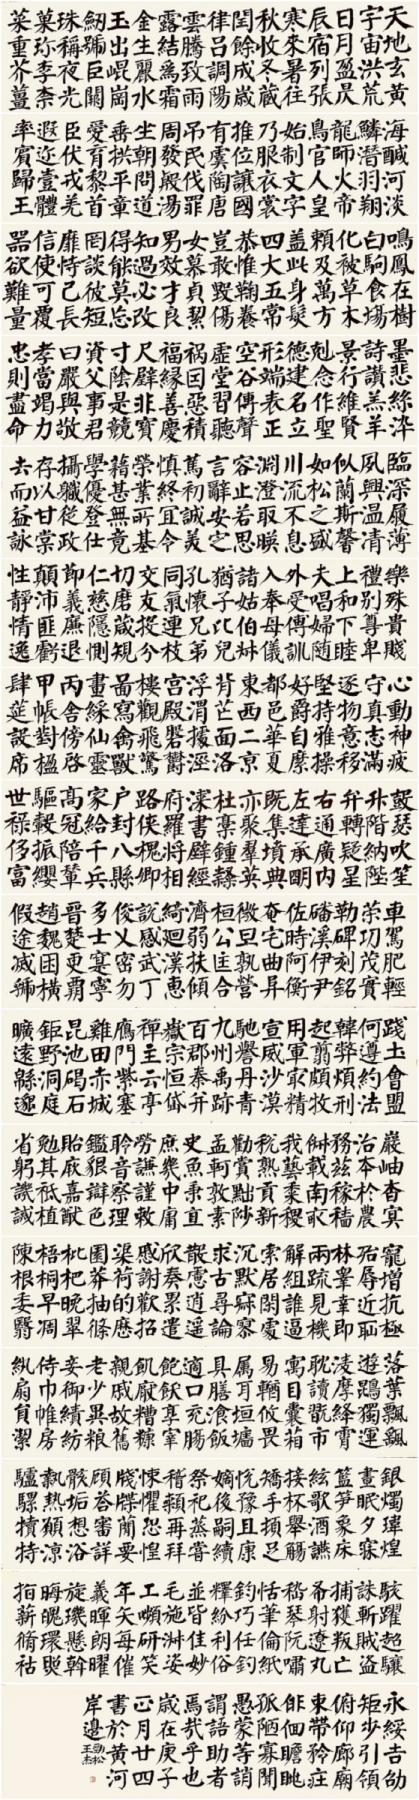 天地玄黄
宇宙洪荒
日月盈昃
辰宿列張
寒來暑往
秋收冬藏
閏餘成歲
律呂調陽
雲騰致雨
露結為霜
金生麗水
玉出崐崗
劍號巨闕
珠稱夜光
菓珍李柰
菜重芥薑
海鹹河淡
鱗潛羽翔
龍師火帝
鳥官人皇
始制文字
乃服衣裳
推位讓國
有虞陶唐
吊民伐罪
周發殷湯
坐朝問道
垂拱平章
愛育黎首
臣伏戎羌
遐迩壹體
率賓歸王
鳴鳳在樹
白駒食場
化被草木
賴及萬方
盖此身髮
四大五常
恭惟鞠養
豈敢毀傷
女慕貞絜
男效才良
知過必改
得能莫忘
罔談彼短
靡恃己長
信使可覆
器欲難量
墨悲絲染
詩讚羔羊
景行維賢
剋念作聖
德建名立
形端表正
空谷傳聲
虛堂習聽
禍因惡積
福緣善慶
尺璧非寶
寸陰是競
資父事君
曰嚴與敬
孝當竭力
忠則盡命
臨深履薄
夙興温清
似蘭斯馨
如松之盛
川流不息
淵澄取暎
容止若思
言辭安定
篤初誠美
慎終宜令
榮業所基
藉甚無竟
學優登仕
攝職從政
存以甘棠
去而益詠
樂殊貴賤
禮別尊卑
上和下睦
夫唱婦隨
外受傅訓
入奉母儀
諸姑伯叔
猶子比兒
孔懷兄弟
同氣連枝
交友投分
切磨箴規
仁慈隱惻
造次弗離
節義廉退
顛沛匪虧
性靜情逸
心動神疲
守真志滿
逐物意移
堅持雅操
好爵自縻
都邑華夏
東西二京
背芒面洛
浮渭據涇
宮殿磐鬱
樓觀飛驚
圖寫禽獸
畫綵仙靈
丙舍傍啓
甲帳對楹
肆筵設席
鼓瑟吹笙
升階納陛
弁轉疑星
右通廣內
左達承明
既集墳典
亦聚群英
杜稾鍾隸
漆書壁經
府羅將相
路俠槐卿
户封八縣
家給千兵
高冠陪輦
驅轂振纓
世禄侈富
車駕肥輕
榮功茂實
勒碑刻銘
磻溪伊尹
佐時阿衡
奄宅曲阜
微旦孰營
桓公匡合
濟弱扶傾
綺廻漢惠
說感武丁
俊乂密勿
多士寔寧
晉楚更霸
趙魏困横
假途滅虢
踐土會盟
何遵約法
韓弊煩刑
起翦頗牧
用軍最精
宣威沙漠
馳譽丹青
九州禹跡
百郡秦并
嶽宗恒岱
禪主云亭
鴈門紫塞
雞田赤城
昆池碣石
鉅野洞庭
曠遠緜邈
巖岫杳冥
治本於農
務茲稼穡
俶載南畝
我藝黍稷
稅熟貢新
勸賞黜陟
孟軻敦素
史魚秉直
庶幾中庸
勞謙謹敕
聆音察理
鑑貌辯色
貽厥嘉猷
勉其祗植
省躬譏誡
寵增抗極
殆辱近恥
林皋幸即
兩疏見機
解組誰逼
索居閑處
沉默寂寥
求古尋論
散慮逍遥
欣奏累遣
慼謝歡招
渠荷的歷
園莽抽條
枇杷晚翠
梧桐早凋
陳根委翳
落葉飄颻
遊鵾獨運
凌摩絳霄
耽讀翫市
寓目囊箱
易輶攸畏
屬耳垣墙
具膳飡飯
適口充腸
飽飫享宰
飢厭糟糠
親戚故舊
老少異粮
妾御績紡
侍巾帷房
紈扇員潔
銀燭煒煌
晝眠夕寐
籃笋象床
絃歌酒讌
接杯舉觴
矯手頓足
悅豫且康
嫡後嗣續
祭祀蒸嘗
稽顙再拜
悚懼恐惶
牋牒簡要
顧答審詳
骸垢想浴
執熱願涼
驢騾犢特
駭躍超驤
誅斬賊盗
捕獲叛亡
布射遼丸
嵇琴阮嘯
恬筆倫紙
鈞巧任釣
釋紛利俗
並皆佳妙
毛施淑姿
工嚬研笑
年矢每催
羲暉朗曜
旋璣懸斡
晦魄環照
指薪脩祜
永綏吉劭
矩步引領
俯仰廊廟
束帶矜庄
徘徊瞻眺
孤陋寡聞
愚蒙等誚
謂語助者
焉哉乎也
歲在庚子
正月廿四
書於黄河
岸邊
勁松
王杰